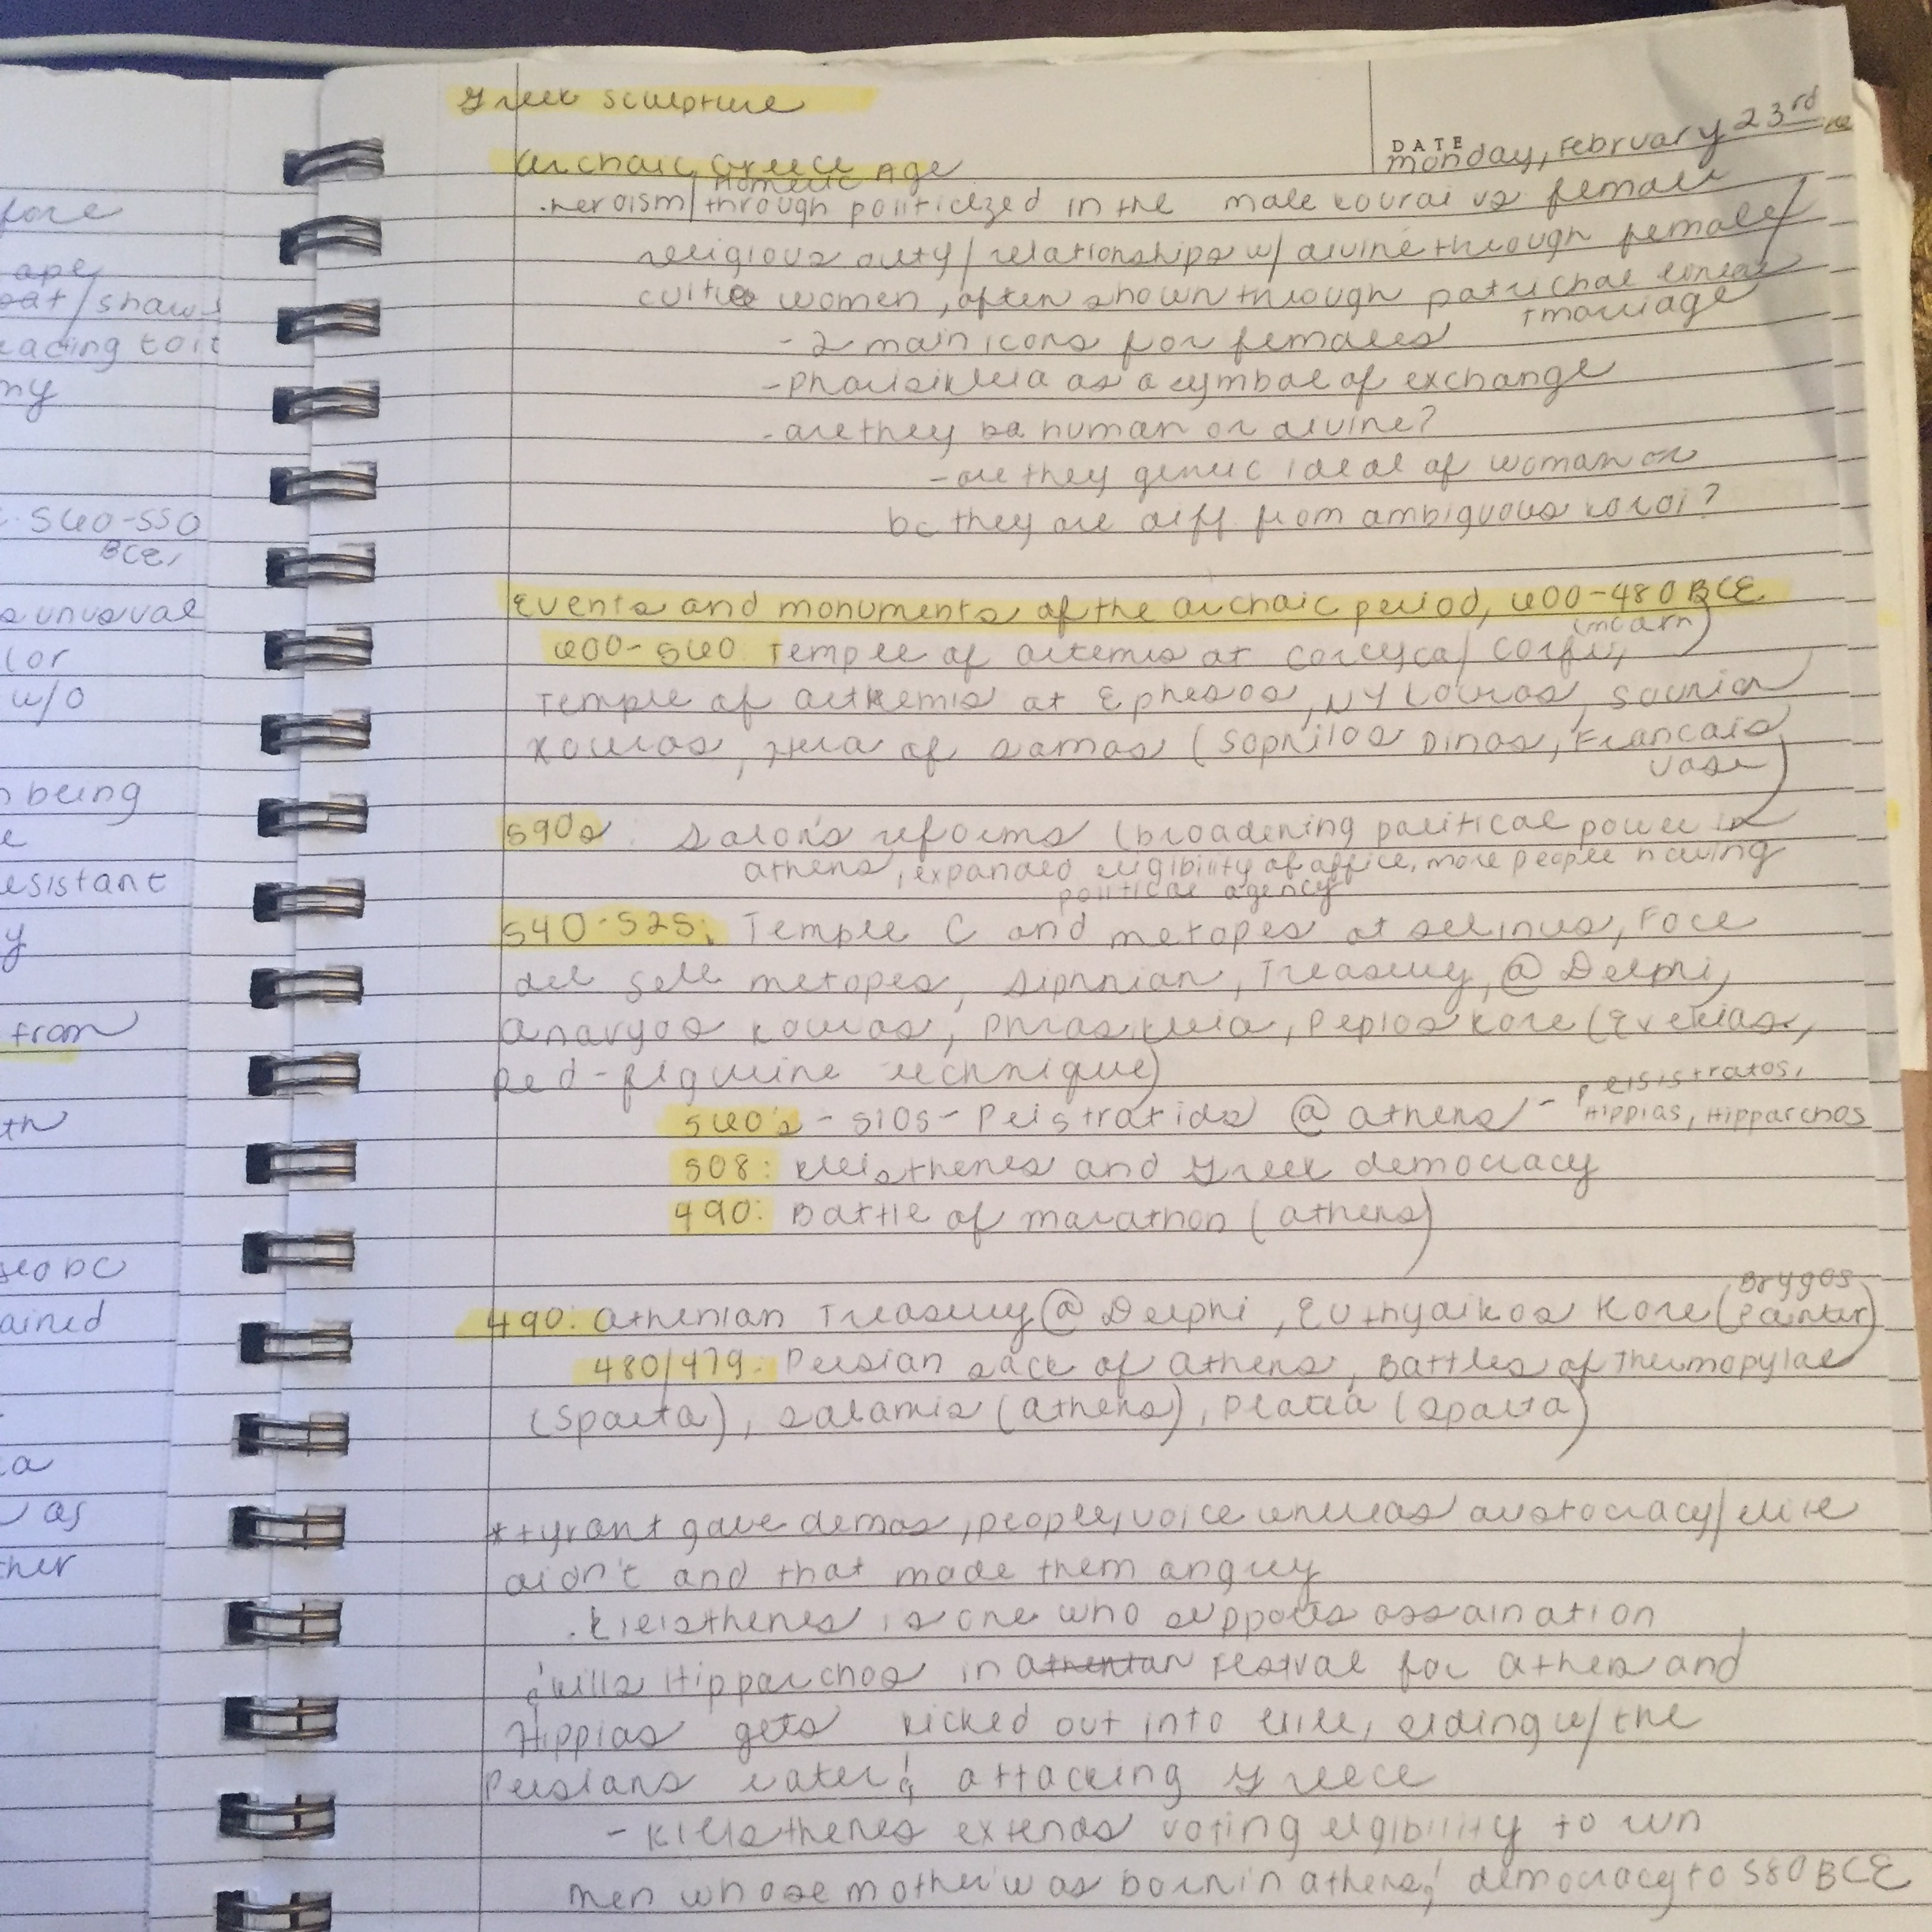 Greek sculpture
DATE
Monday, February 23rd
Archaic Greece Age
Homeric
. heroism/through politicized in the male kourai vs female
religious duty/relationships w/ divine through female/
culture women, often shown through patrichal lineage
+ marriage
- 2 main icons for females
- phrasikleia as a symbol of exchange
- are they be human or divine?
- are they generic ideal of woman or
bc they are diff from ambiguous korai?
Events and monuments of the archaic period, 600-480 BCE
600-560 Temple of artemis at Corcyca/ Corfu,
Temple of artkemis at Ephesos, NY kouros, Sounion
kouros, Hera of samos (Sophilos Dinos, Francais
vase)
590s: Solon's reforms (broadening political power in
athens, expanded eligibility of office, more people having
political agency
540-525: Temple C and metopes at selinus, Foce
del Sele metopes, Siphnian, Treasury, @ Delphi,
anavyos kouros, Phrasikleia, Peplos Kore (Exekias,
Red-figurine technique)
560's - 510s - Peistratids @ athens - Peisistratos,
Hippias, Hipparchos
508: Kleisthenes and Greek democracy
490: Battle of marathon (athens)
490: athenian Treasury @ Delphi, Euthydikos Kore (Brygos
Painter)
480/479: Persian sack of athens, Battles of Thermopylae
(Sparta), salamis (athens), Platea (sparta)
* tyrant gave demos, people, voice whereas austocracy/elite
didn't and that made them angry
. kleisthenes is one who supports assaination
& kills Hipparchos in festval for athens and
Hippias gets kicked out into exile, siding w/ the
Persians later & attacking Greece
- kleisthenes extends voting elgibility to
men whose mother was born in athens & democracy to 580 BCE
fore
ape
oat/shawl
eading to it
my
. 560-550
BCE,
s unusual
lor
w/o
n being
e
esistant
y
from
th
ained
a
as
ther